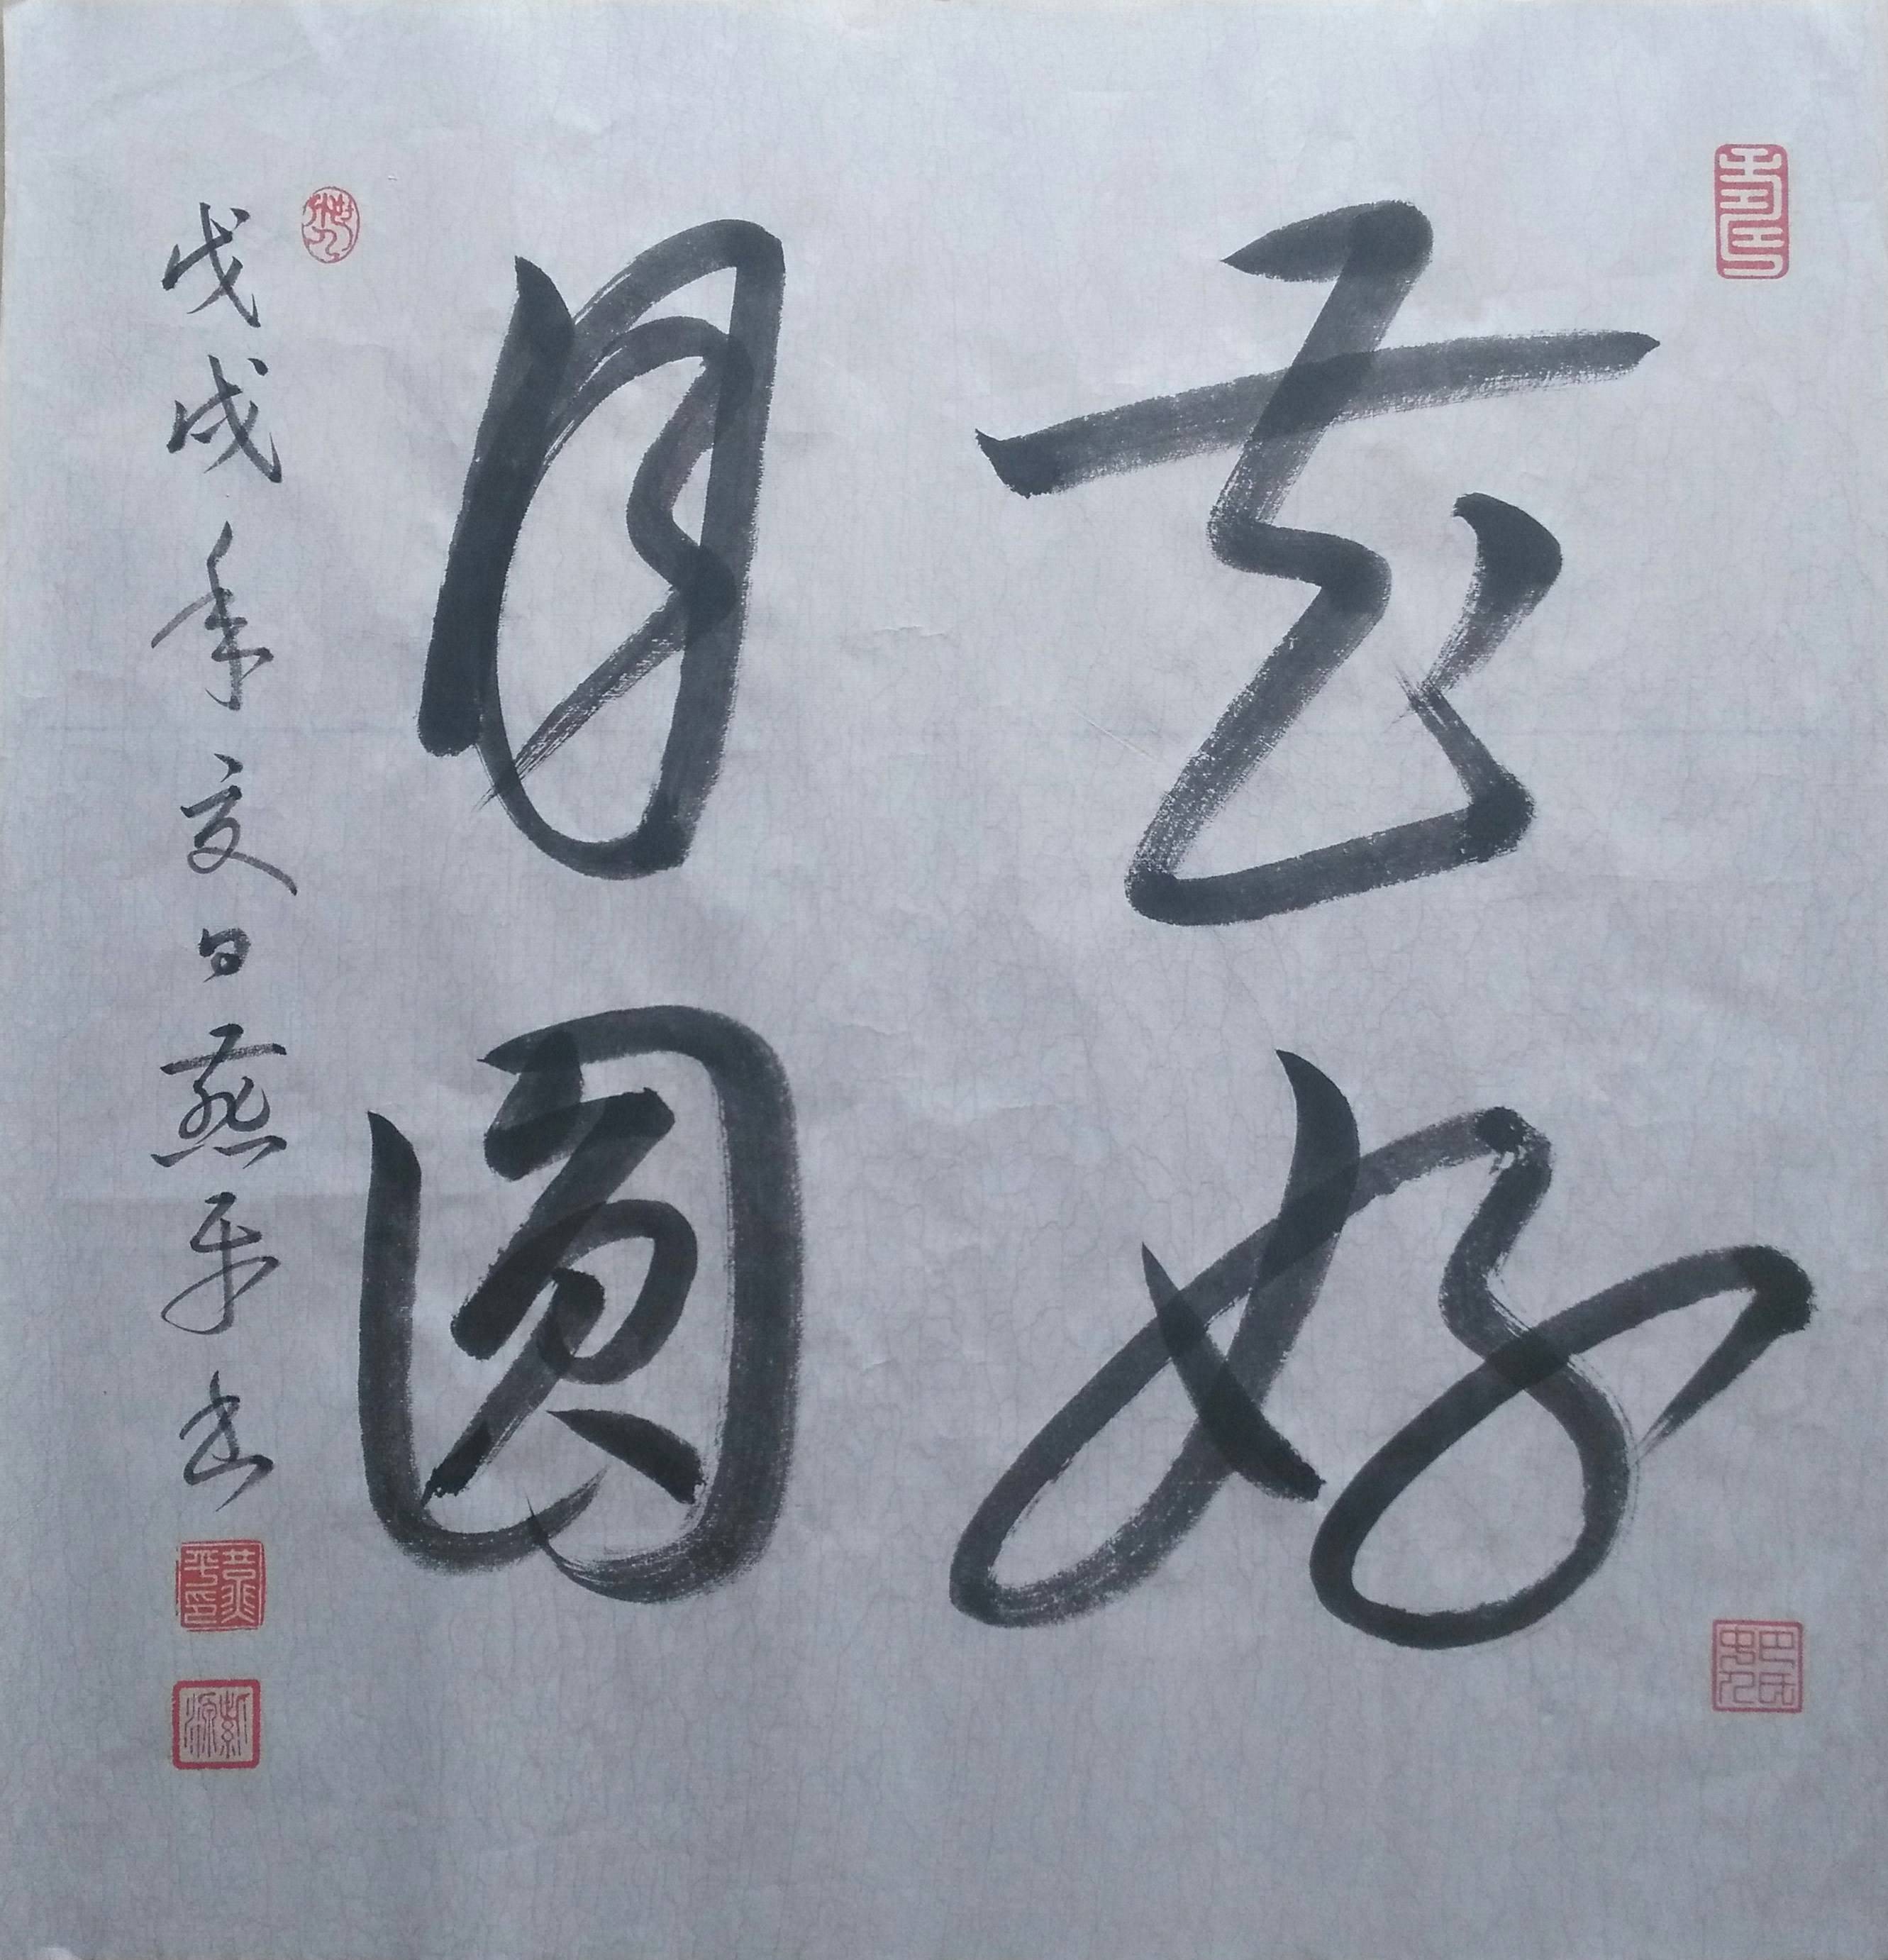 花好
月圆
戊戌年夏日燕平书